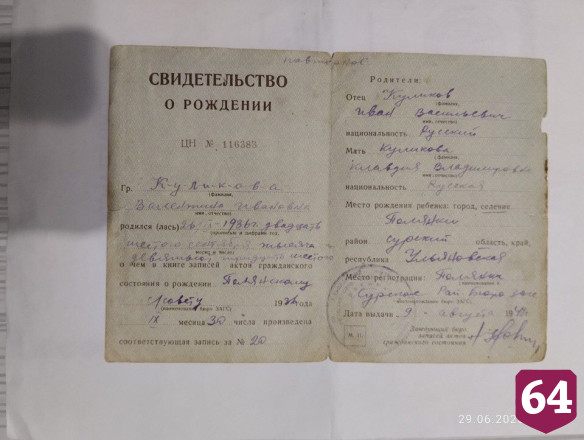 повторное
СВИДЕТЕЛЬСТВО
О РОЖДЕНИИ
ЦН № 116383
Гр. К-у-л-и-к-о-в-а
(фамилия,
Валентина Ивановна
имя, отчество)
родился (лась) 26/IX-1936 г. двадцать
(прописью и цифрами год,
шестого сентября тысяча
месяц и число)
девятьсот тридцать шестого
о чем в книге записей актов гражданского
состояния о рождении Полянскому
с/совету 1936 года
(наименование бюро ЗАГС)
IX месяца 30 числа произведена
соответствующая запись за № 20
Родители:
Отец Куликов
(фамилия,
Иван Васильевич
имя, отчество)
национальность Русский
Мать Куликова
(фамилия,
Клавдия Владимировна
имя, отчество)
национальность Русская
Место рождения ребенка: город, селение
Полянки
район Сурский область, край,
республика Ульяновская
Место регистрации: Полянки
Сурское Рай Бюро ЗАГС
Дата выдачи 9 августа
М. П.
Заведующий бюро
записей актов
гражданского состояния
29.06.202
64